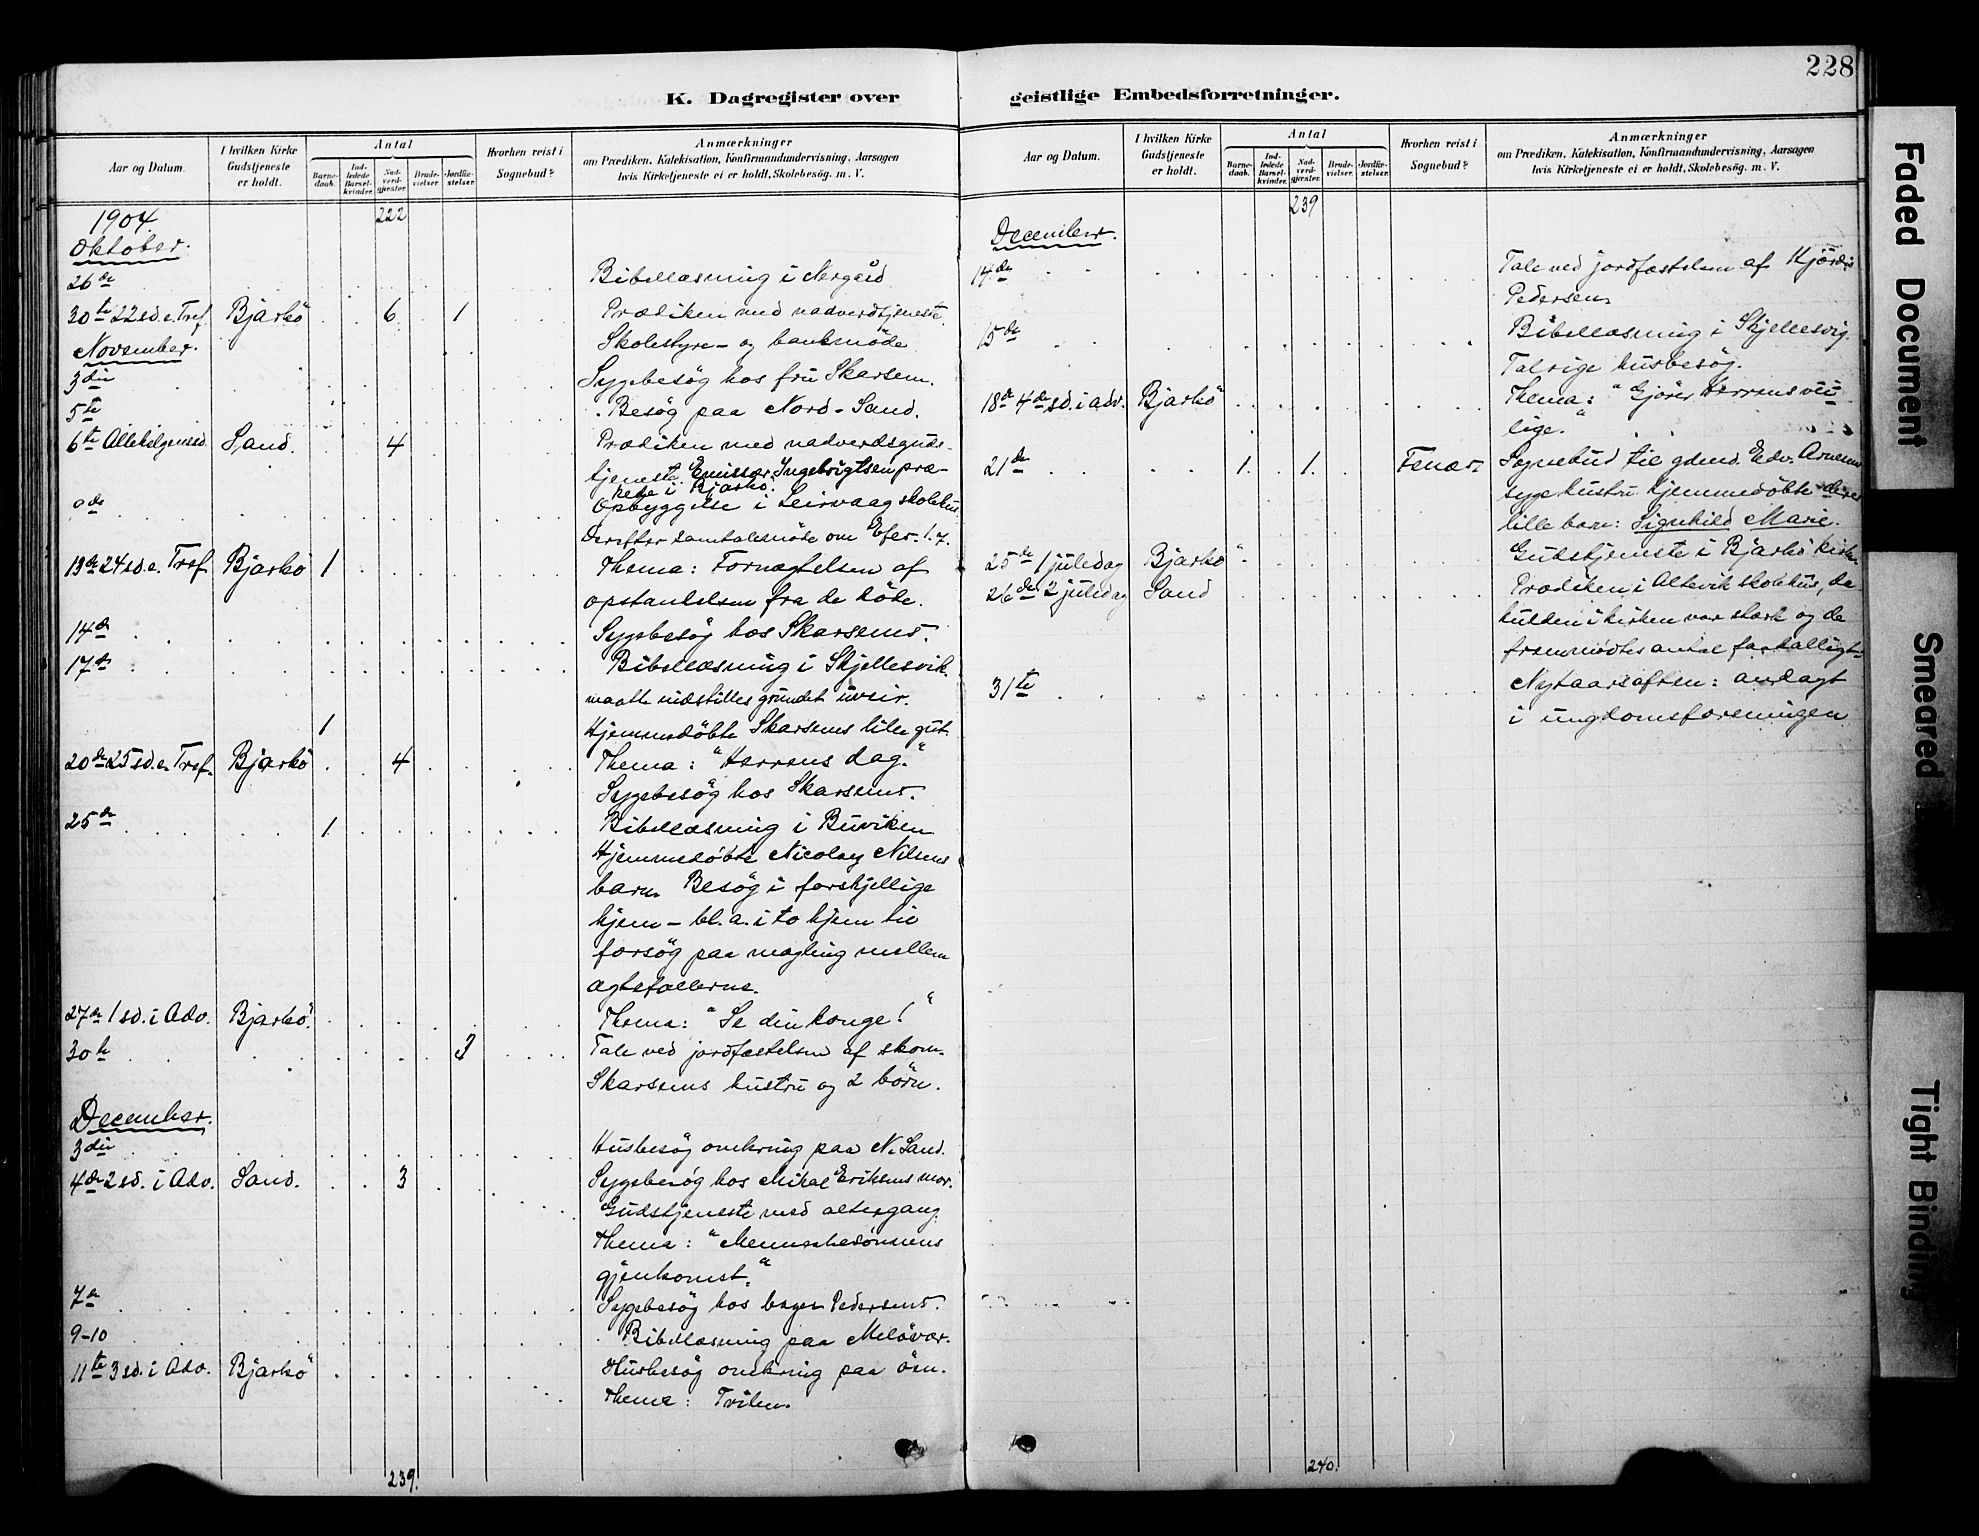 228
K. Dagregister over geistlige Embedsforretninger.
Aar og Datum.
I hvilken Kirke Gudstjeneste er holdt.
Antal
Barnedaab.
Indledede Barselkvinder.
Nadverdgjæster.
Brudevielser.
Jordfæstelser.
Hvorhen reist i Sognebud?
Anmærkninger
om Prædiken, Katekisation, Konfirmandundervisning, Aarsagen
hvis Kirketjeneste ei er holdt, Skolebesøg. m. V.
1904. 222
Oktober.
26de Bibellæsning i Nergård
30te 22 sd. e. Tref. Bjarkö 6 1 Prædiken med nadverdtjeneste.
November. Skolestyre- og bankmöde
3die Sygebesög hos fru Skarsem.
5te Besög paa Nord-Sand.
6te Allehelgensd. Sand. 4 Prædiken med nadverdsguds-
tjeneste. Emissær Ingebrigtsen præ-
kede i Bjarkö.
9de Opbyggelse i Leirvaag skolehus.
Derefter samtalemöde om Efes. 1.7.
13de 24 sd. e. Tref. Bjarkö 1 Thema: Fornægtelsen af
opstandelsen fra de döde.
14de Sygebesög hos Skarsems.
17de Bibellæsning i Skjellesvik
maatte indstilles grundet uveir.
1 Hjemmedöbte Skarsems lille gut
20de 25 sd. e. Tref. Bjarkö 4 Thema: "Herrens dag."
Sygebesög hos Skarsems.
25de 1 Bibellæsning i Buviken
Hjemmedöbte Nicolay Nilsens
barn. Besög i forskjellige
hjem - bl. a. i to hjem til
forsög paa mægling mellem
ægtefællerne.
27de 1 sd. i Adv. Bjarkö. Thema: "Se din konge!"
30te 3 Tale ved jordfæstelsen af skom.
Skarsems hustru og 2 börn.
December.
3die Husbesög omkring paa N. Sand.
4de 2 sd. i Adv. Sand. 3 Sygebesög hos Mikal Eriksens mor.
Gudstjeneste med altergang.
Thema: "Menneskesönnens
gjenkomst."
7de Sygebesög hos bager Pedersens.
9-10 Bibellæsning paa Melövær.
11te 3 sd. i Adv. Bjarkö Husbesög omkring paa öen.
Thema: Tvilen.
239.
Aar og Datum.
I hvilken Kirke Gudstjeneste er holdt.
Antal
Barnedaab.
Indledede Barselkvinder.
Nadverdgjæster.
Brudevielser.
Jordfæstelser.
Hvorhen reist i Sognebud?
Anmærkninger
om Prædiken, Katekisation, Konfirmandundervisning, Aarsagen
hvis Kirketjeneste ei er holdt, Skolebesøg. m. V.
239
December.
14de Tale ved jordfæstelsen af Hjördis
Pedersen
15de Bibellæsning i Skjellesvig.
Talrige husbesög.
18de 4de sd. i adv. Bjarkö Thema: "Gjörer Herrens vei
lige."
21de 1. 1. Fenær. Sognebud til gdmd. Edv. Arnesens
syge hustru. Hjemmedöbte deres
lille barn: Signhild Marie.
25de 1 juledag Bjarkö Gudstjeneste i Bjarkö kirke.
26de 2 juledag Sand Prædiken i Altevik skolehus, da
kulden i kirken var stærk og de
fremmödtes antal faatalligt
31te Nytaarsaften: andagt
i ungdomsforeningen
240.
Faded Document
Smeared
Tight Binding